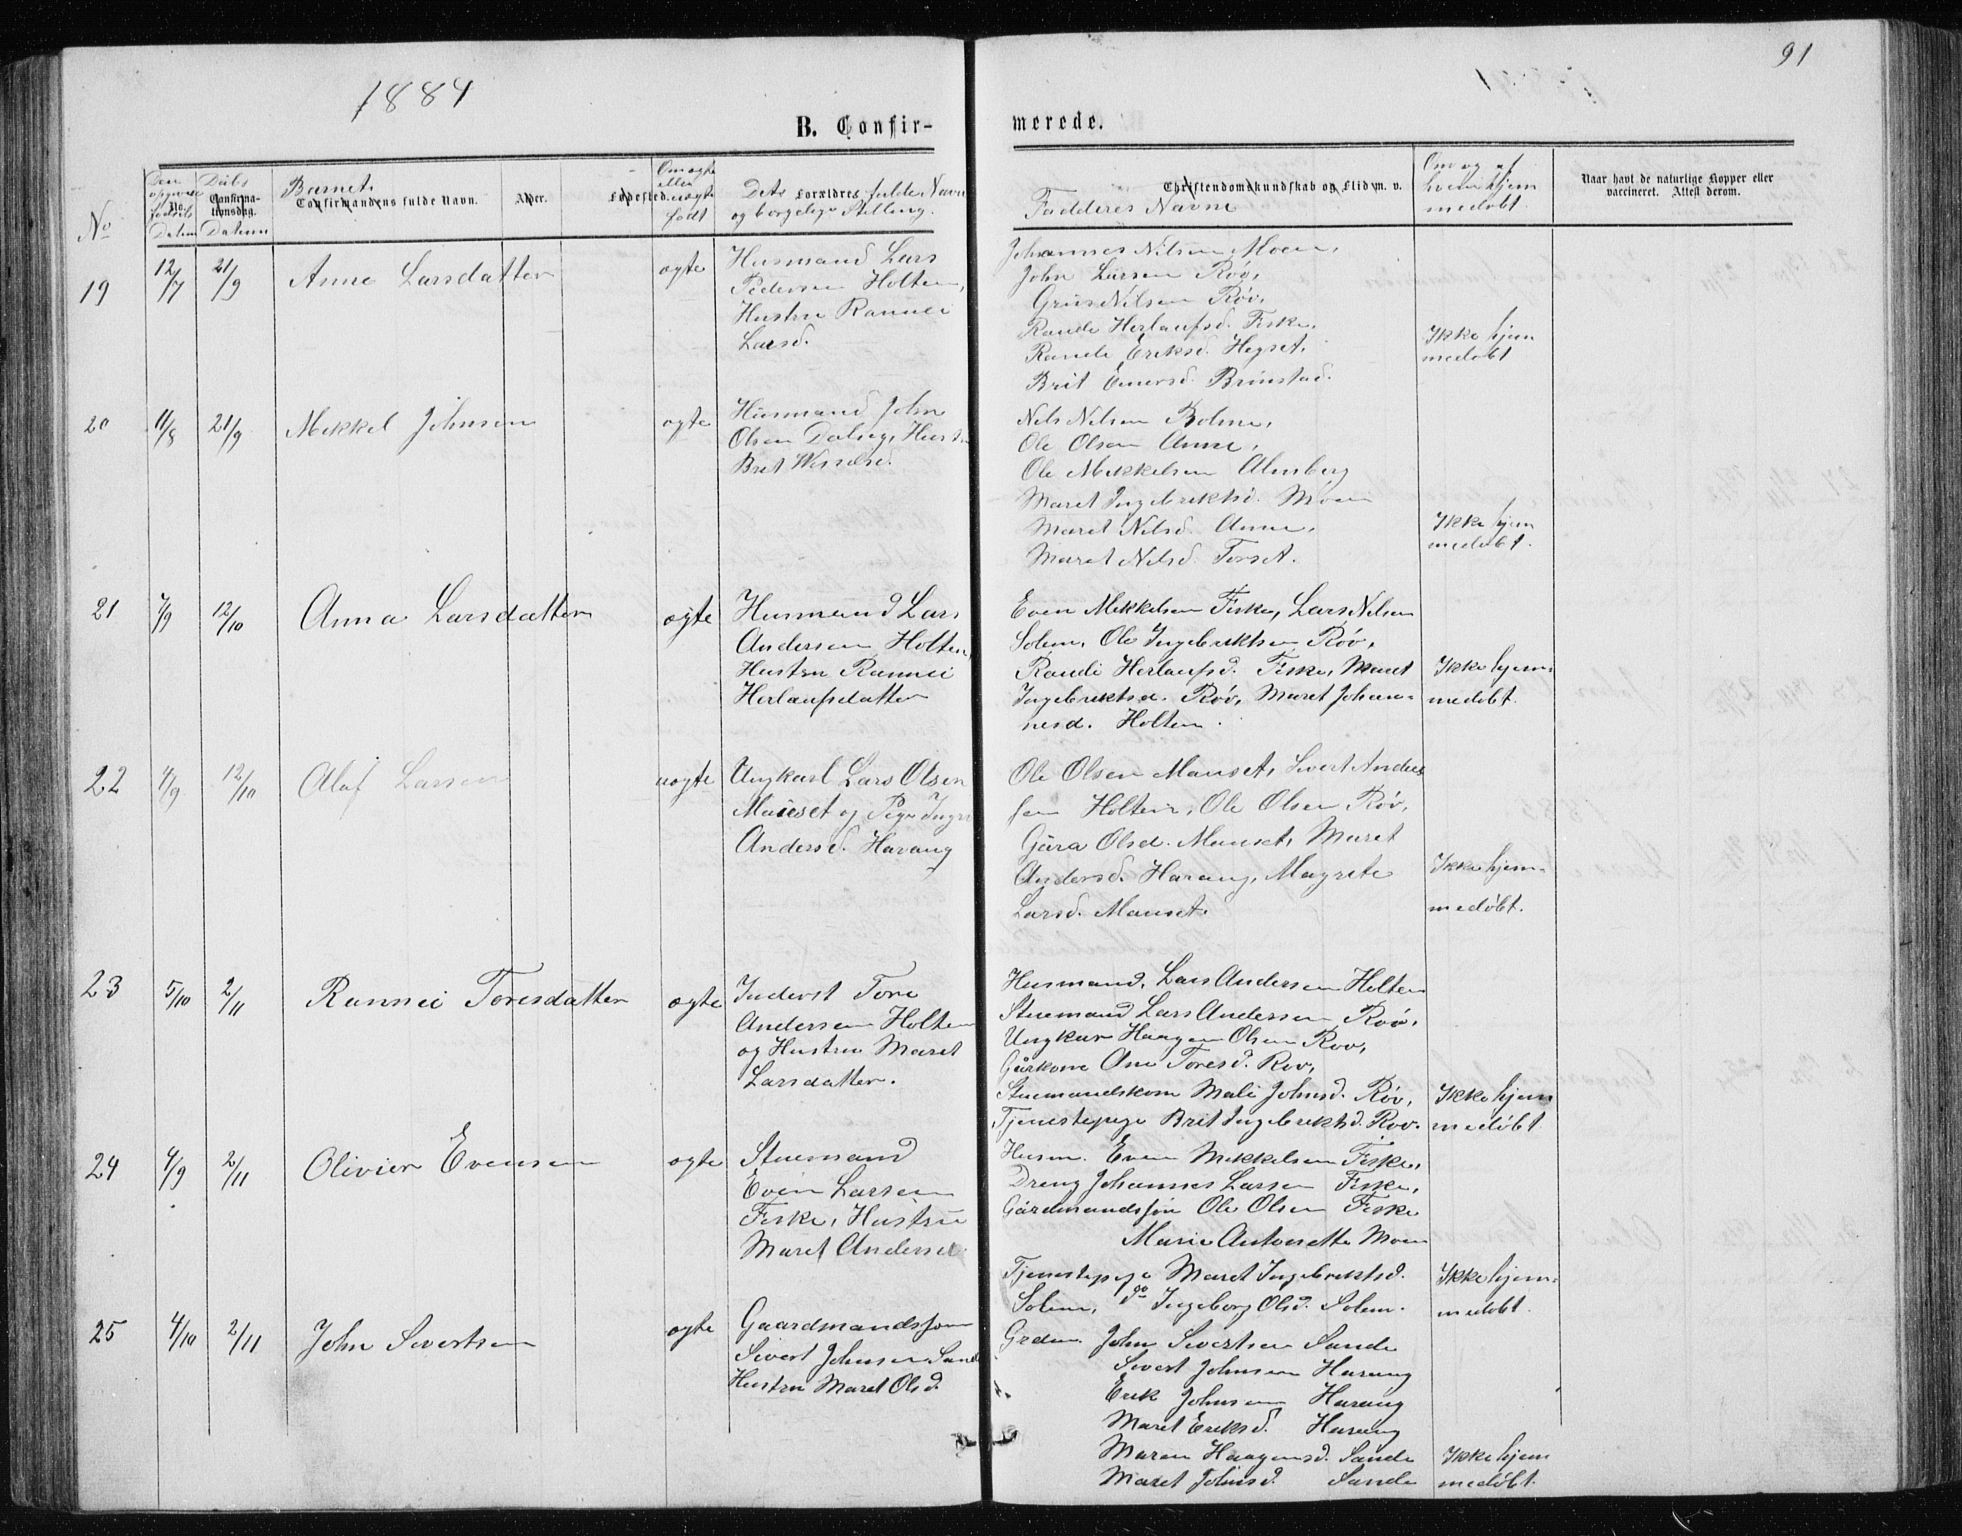 91
1884
B. Confir-
merede.
No
Den opgivne fødsels Datum
No.
Daabs Datum
Confirma-
tionsdag.
Barnets
Confirmandens fulde Navn.
Alder.
Fødested.
Om ægte eller uægte født
Dets Forældres fulde Navn
og borgelige Stilling.
Christendomskundskab og Flid m. v.
Fadderes Navne
Om og af
hvem hjem
medøbt.
Naar havt de naturlige Kopper eller
vaccineret. Attest derom.
19
12/7
21/9
Anne Larsdatter
ægte
Husmand Lars
Pedersen Holten,
Hustru Rannei
Larsd.
Johannes Nilsen Moen,
John Larsen Røv,
Nilsen Røv,
Randi Herlaufsd. Fiske,
Randi Eriksd. Hegset,
Brit Einersd. Brinstad.
Ikke hjem
medøbt
20
11/8
21/9
Mikkel Johnsen
ægte
Husmand John
Olsen Dalseg, Hustr
Bret
Nils Nilsen Bolme,
Ole Olsen Aune,
Ole Mikkelsen Almberg
Maret Ingebriktsd. Moen
Maret Nilsd. Aune,
Maret Nilsd. Torset.
Ikke hjem
medøbt.
21
7/9
12/10
Anna Larsdatter
ægte
Husmand Lars
Andersen Holten,
Hustru Rannei
Herlaufsdatter
Even Mikkelsen Fiske, Lars Nilsen
Solem, Ole Ingebriktsen Røv,
Randi Herlaufsd. Fiske, Maret
Ingebriktsd. Røv, Maret Johan-
nesd. Holten.
Ikke hjem-
medøbt.
22
4/9
12/10
Olaf Larsen
uægte
Ungkarl Lars Olsen
Mauset og Pige Ingri
Andersd. Harang
Ole Olsen Mauset, Sivert Ander
sen Holten, Ole Olsen Røv,
Gura Olsd. Mauset, Maret
Andersd. Harang, Magrete
Larsd. Mauset.
Ikke hjem-
medøbt.
23
5/10
2/11
Rannei Toresdatter
ægte
Inderst Tore
Andersen Holten
og Hustru Maret
Larsdatter.
Husmand, Lars Andersen Holten
Stuemand Lars Andersen Røv,
Ungkar Haagen Olsen Rov,
Gårkone Ane Toresd. Rov,
Stuemandskone Mali Johnsd. Røv,
Tjenestepige Brit Ingebriktsd. Rov.
Ikke hjem
medøbt
24
4/9
2/11
Olivier Evensen
ægte
Stuemand
Even Larsen
Fiske, Hustru
Maret Andersd.
Husm. Even Mikkelsen Fiske,
Dreng Johannes Larsen Fiske,
Gårdmandssøn Ole Olsen Fiske
Marie Antonette Moen
Tjenestepige Maret Ingebriktsd.
Solem, do Ingeborg Olsd. Solem.
Ikke hjem-
medøbt.
25
4/10
2/11
John Sivertsen
ægte
Gaardmandssøn
Sivert Johnsen Sande
Hustru Maret Olsd.
Grdm. John Sivertsen Sande
Sivert Johnsen Harang
Erik Johnsen Harang
Maret Eriksd. Harang
Maren Haagensd. Sande
Maret Johnsd. Sande
Ikke hjem
medøbt.